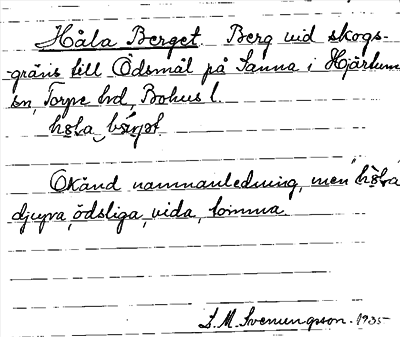 Håla Berget. Berg vid skogs-
gräns till Ödsmål på Sanna i Hjärtum
sn, Torpe hd, Bohus l.
Okänd namnanledning, men håla
djupa, ödsliga, vida, tomma.
S. M. Svenungsson. 1935